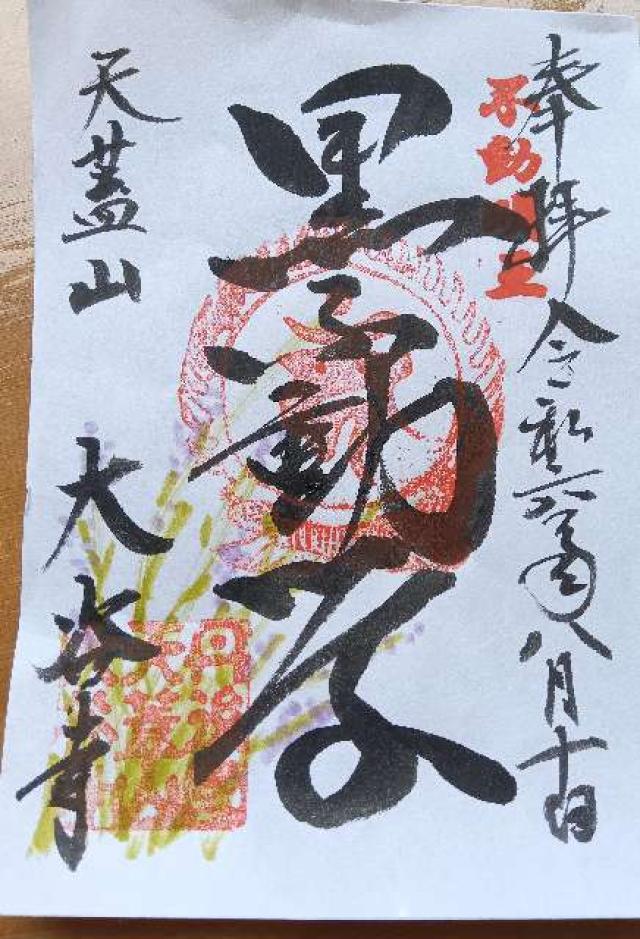 奉拝 令和六年八月十日
不動明王
黒不動尊
天蓋山 大谷寺